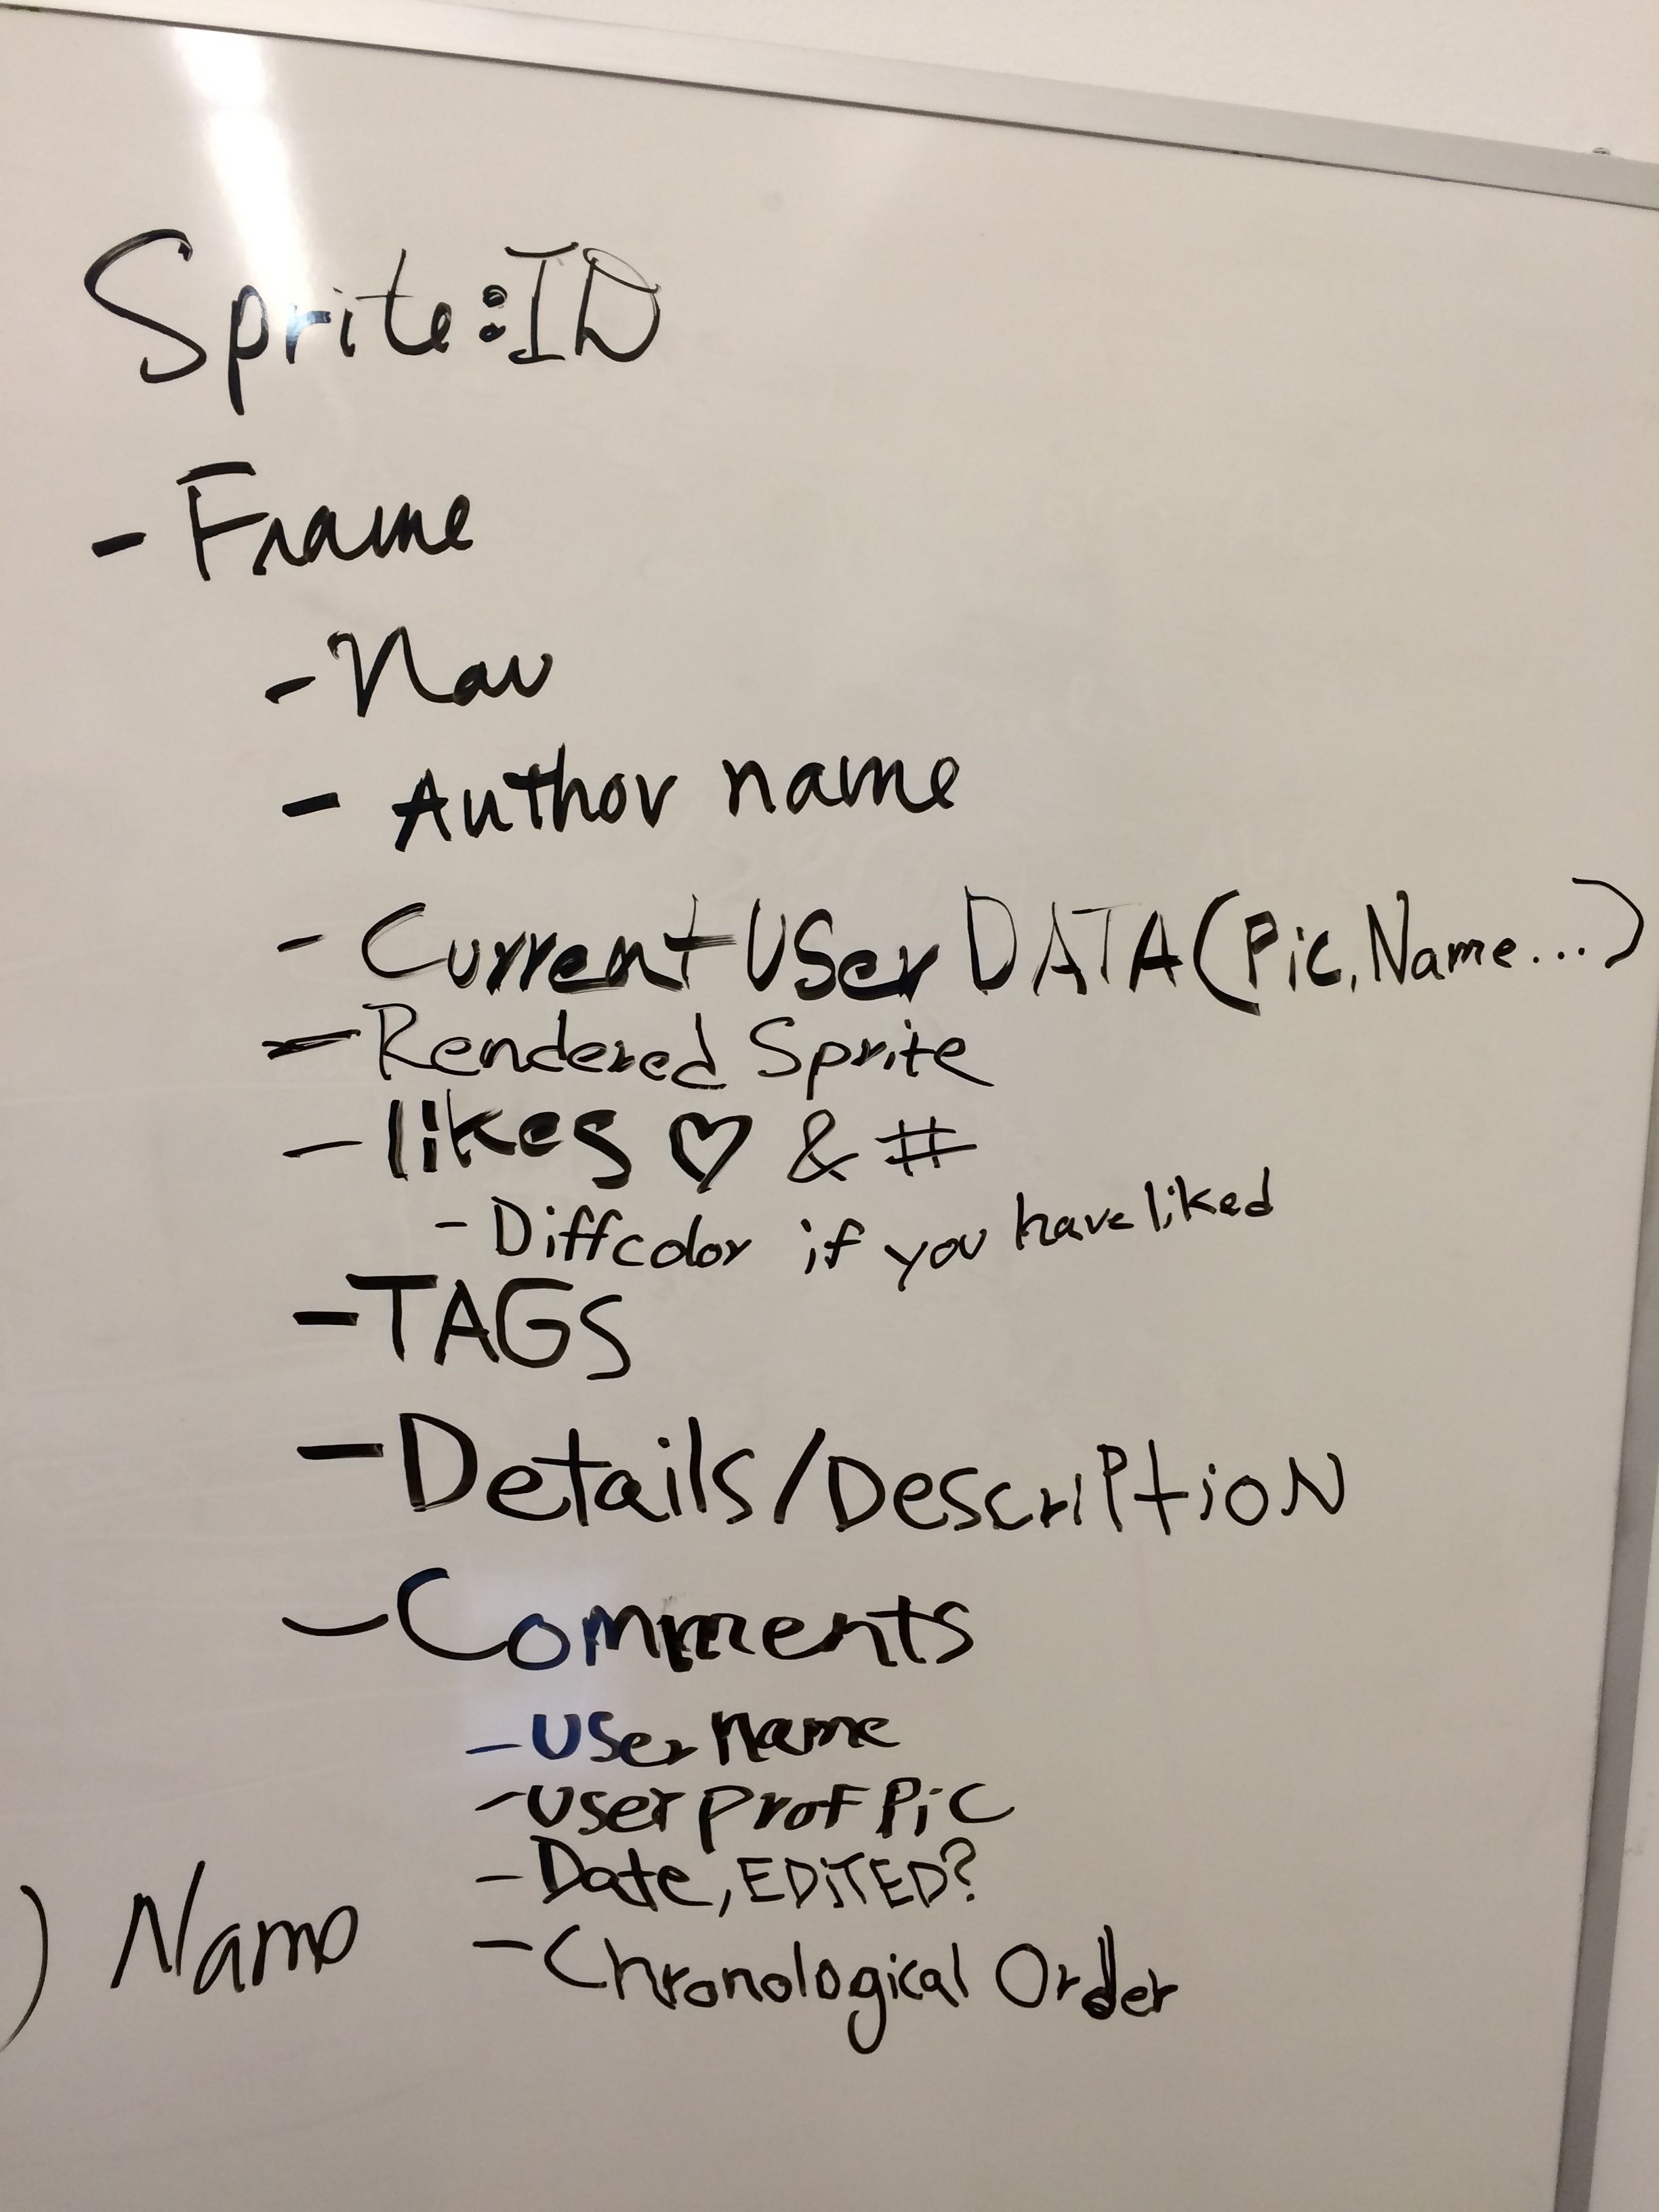 Sprite:ID
- Frame
- Nav
- Author name
- Current User DATA (Pic, Name...)
- Rendered Sprite
- likes ♡ & #
- Diff color if you have liked
- TAGS
- Details/Description
- Comments
- User name
- User prof Pic
- Date, EDITED?
- Chronological Order
) Name